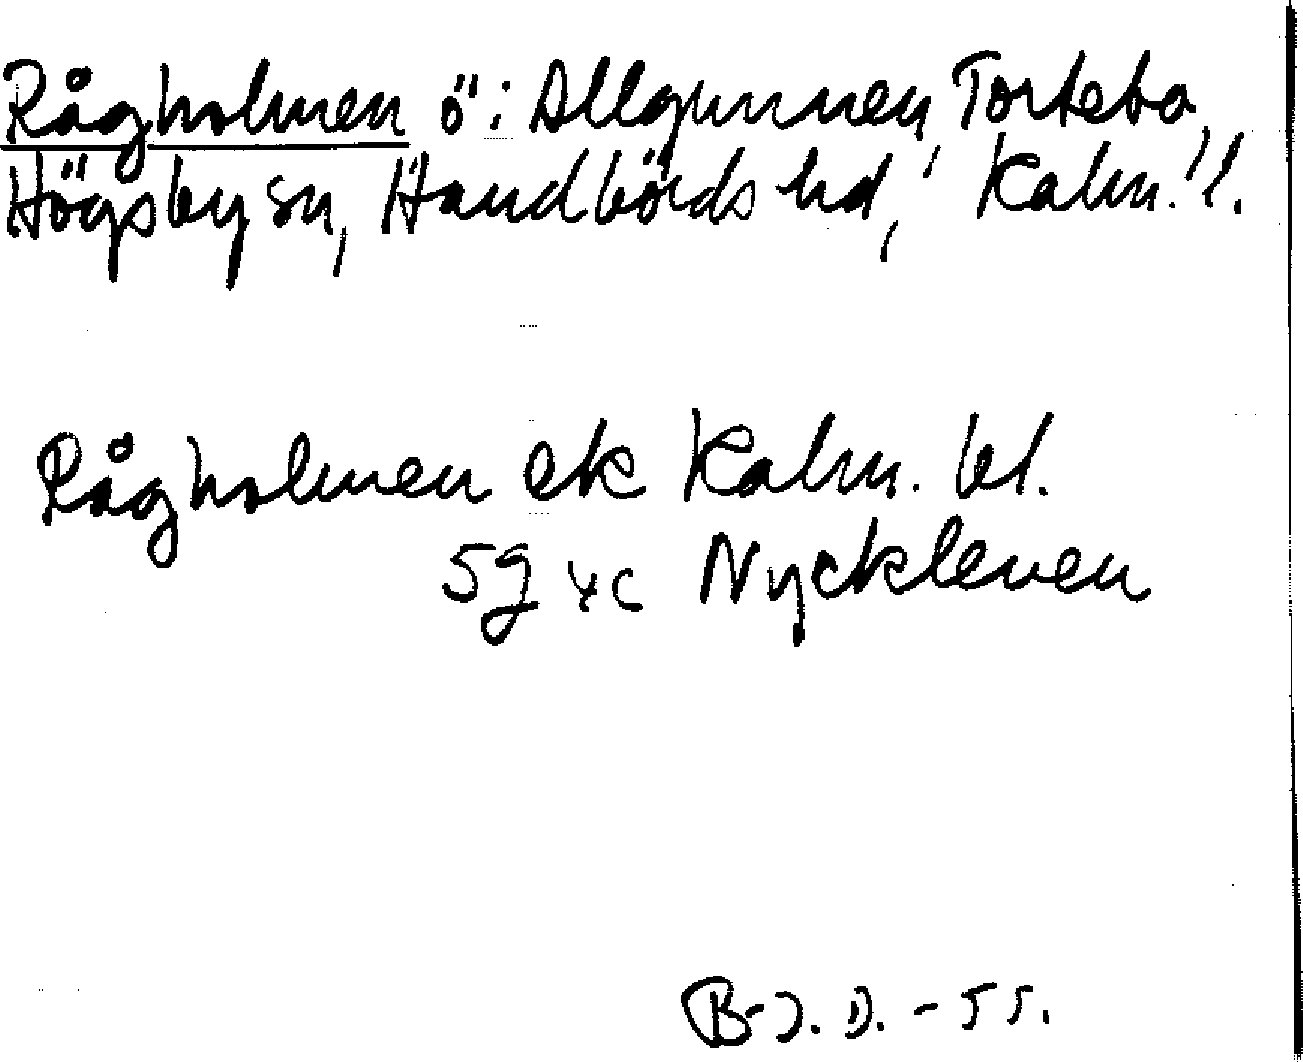 Rågholmen ö i Allgunnen, Torteba,
Högsby sn, Handbörds hd, Kalm. l.
Rågholmen ek Kalm. bl.
5g xc Nyckleven
B-J. D. - 55.